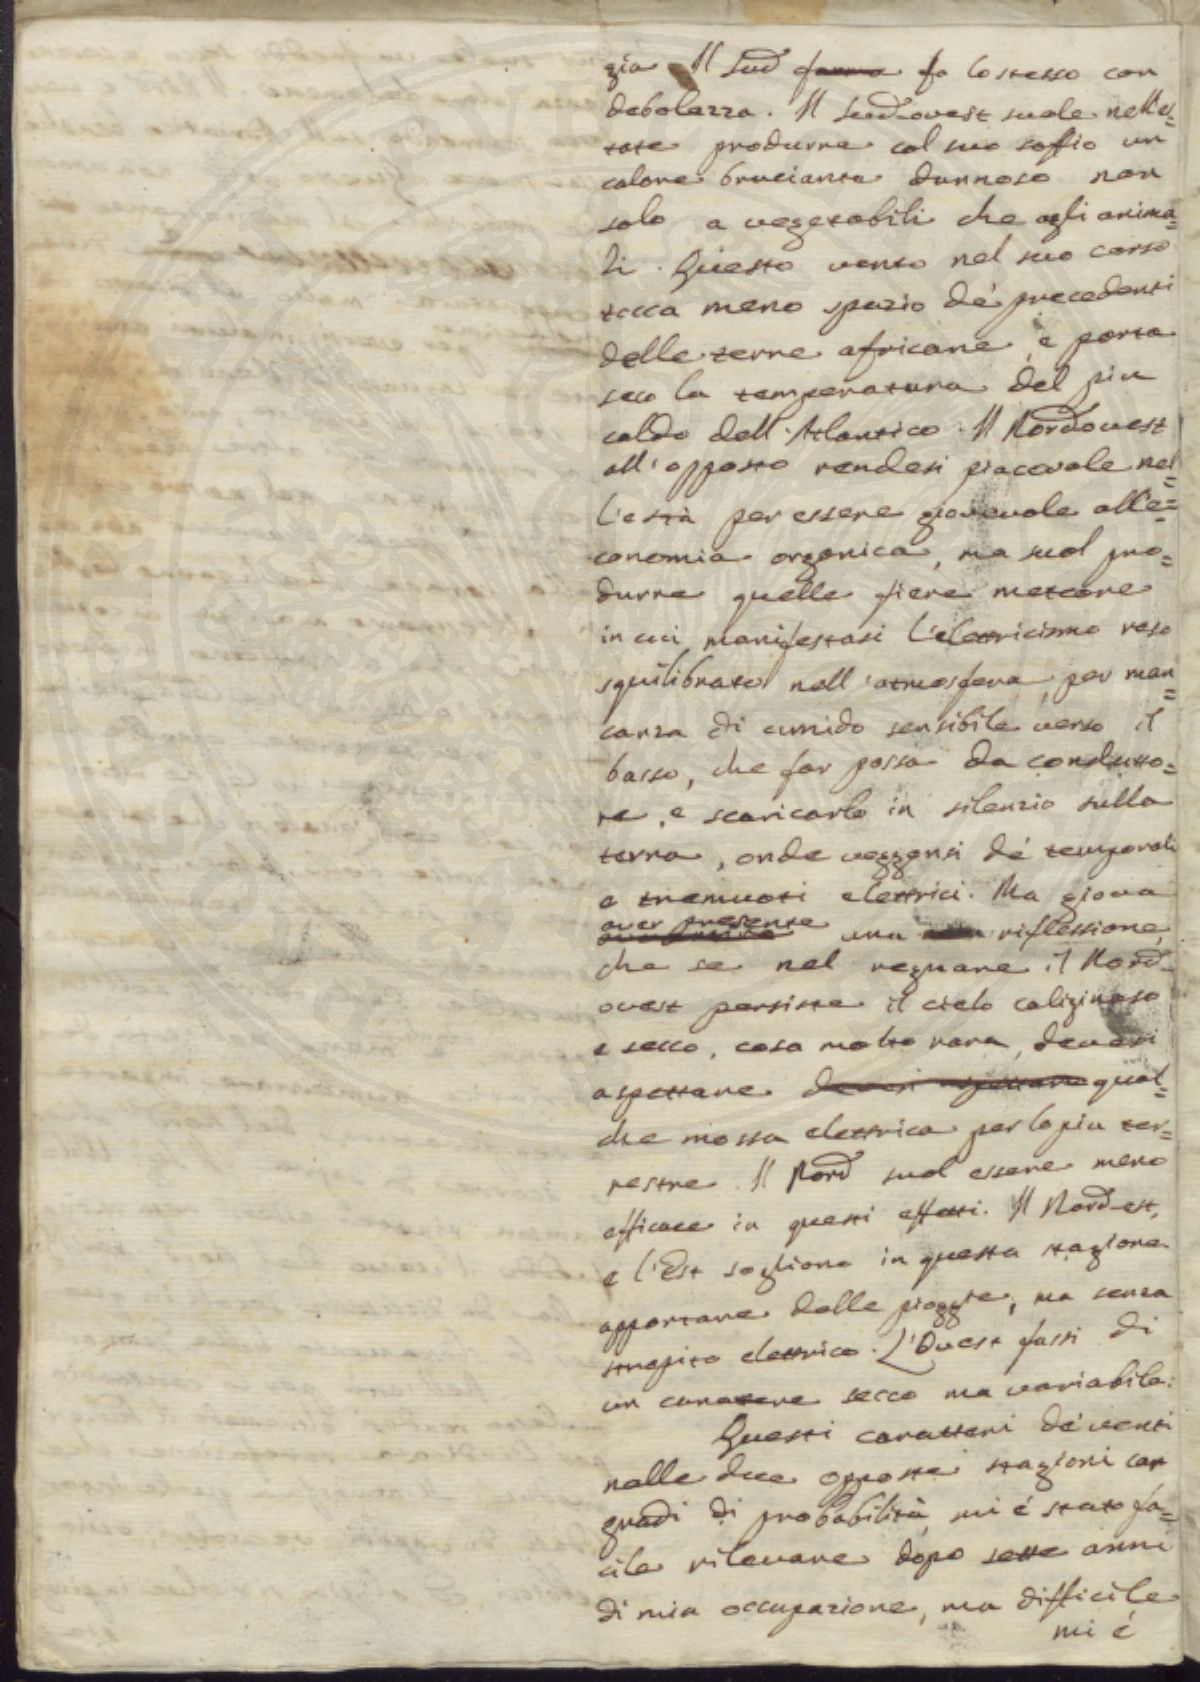 gia. Il Sud farma fa lo stesso con
debolezza. Il Sud-ovest suole nell'es=
tate produrre col suo soffio un
calore bruciante dannoso non
solo a vegetabili che agli anima=
li. Questo vento nel suo corso
tocca meno spazio de' precedenti
delle terre africane, e porta
seco la temperatura del piu
caldo dell'Atlantico. Il Nordovest
all'opposto rendesi piacevole nel=
l'està per essere giovevole all'e=
conomia organica, ma suol pro=
durre quelle fiere meteore
in cui manifestasi l'elettricismo reso
squilibrato nell'atmosfera, per man=
canza di umido sensibile verso il
basso, che far possa da condutto=
re, e scaricarlo in silenzio sulla
terra, onde veggonsi de' temporali
e tremuoti elettrici. Ma giova
aver presente una riflessione,
che se nel regnare il Nord-
ovest persiste il cielo caliginoso
e secco, cosa molto rara, devesi
aspettare devesi aspettare qual=
che mossa elettrica per lo piu ter=
restre. Il Nord suol essere meno
efficace in questi effetti. Il Nord-est,
e l'Est sogliono in questa stagione
apportare delle pioggie, ma senza
strepito elettrico. L'Ovest fassi di
un caratere secco ma variabile.
Questi caratteri de' venti
nelle due opposte stagioni con
gradi di probabilità, mi è stato fa=
cile rilevare dopo sette anni
di mia occupazione, ma difficile
mi è